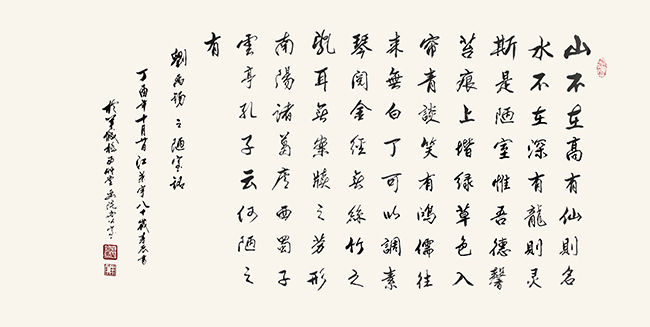 山不在高有仙則名
水不在深有龍則灵
斯是陋室惟吾德馨
苔痕上堦绿草色入
帘青談笑有鴻儒往
来無白丁可以調素
琴阅金经無絲竹之
乱耳無案牘之劳形
南陽诸葛庐西蜀子
雲亭孔子云何陋之
有
劉禹锡之陋室铭
丁酉年十月 八十歲 书
於